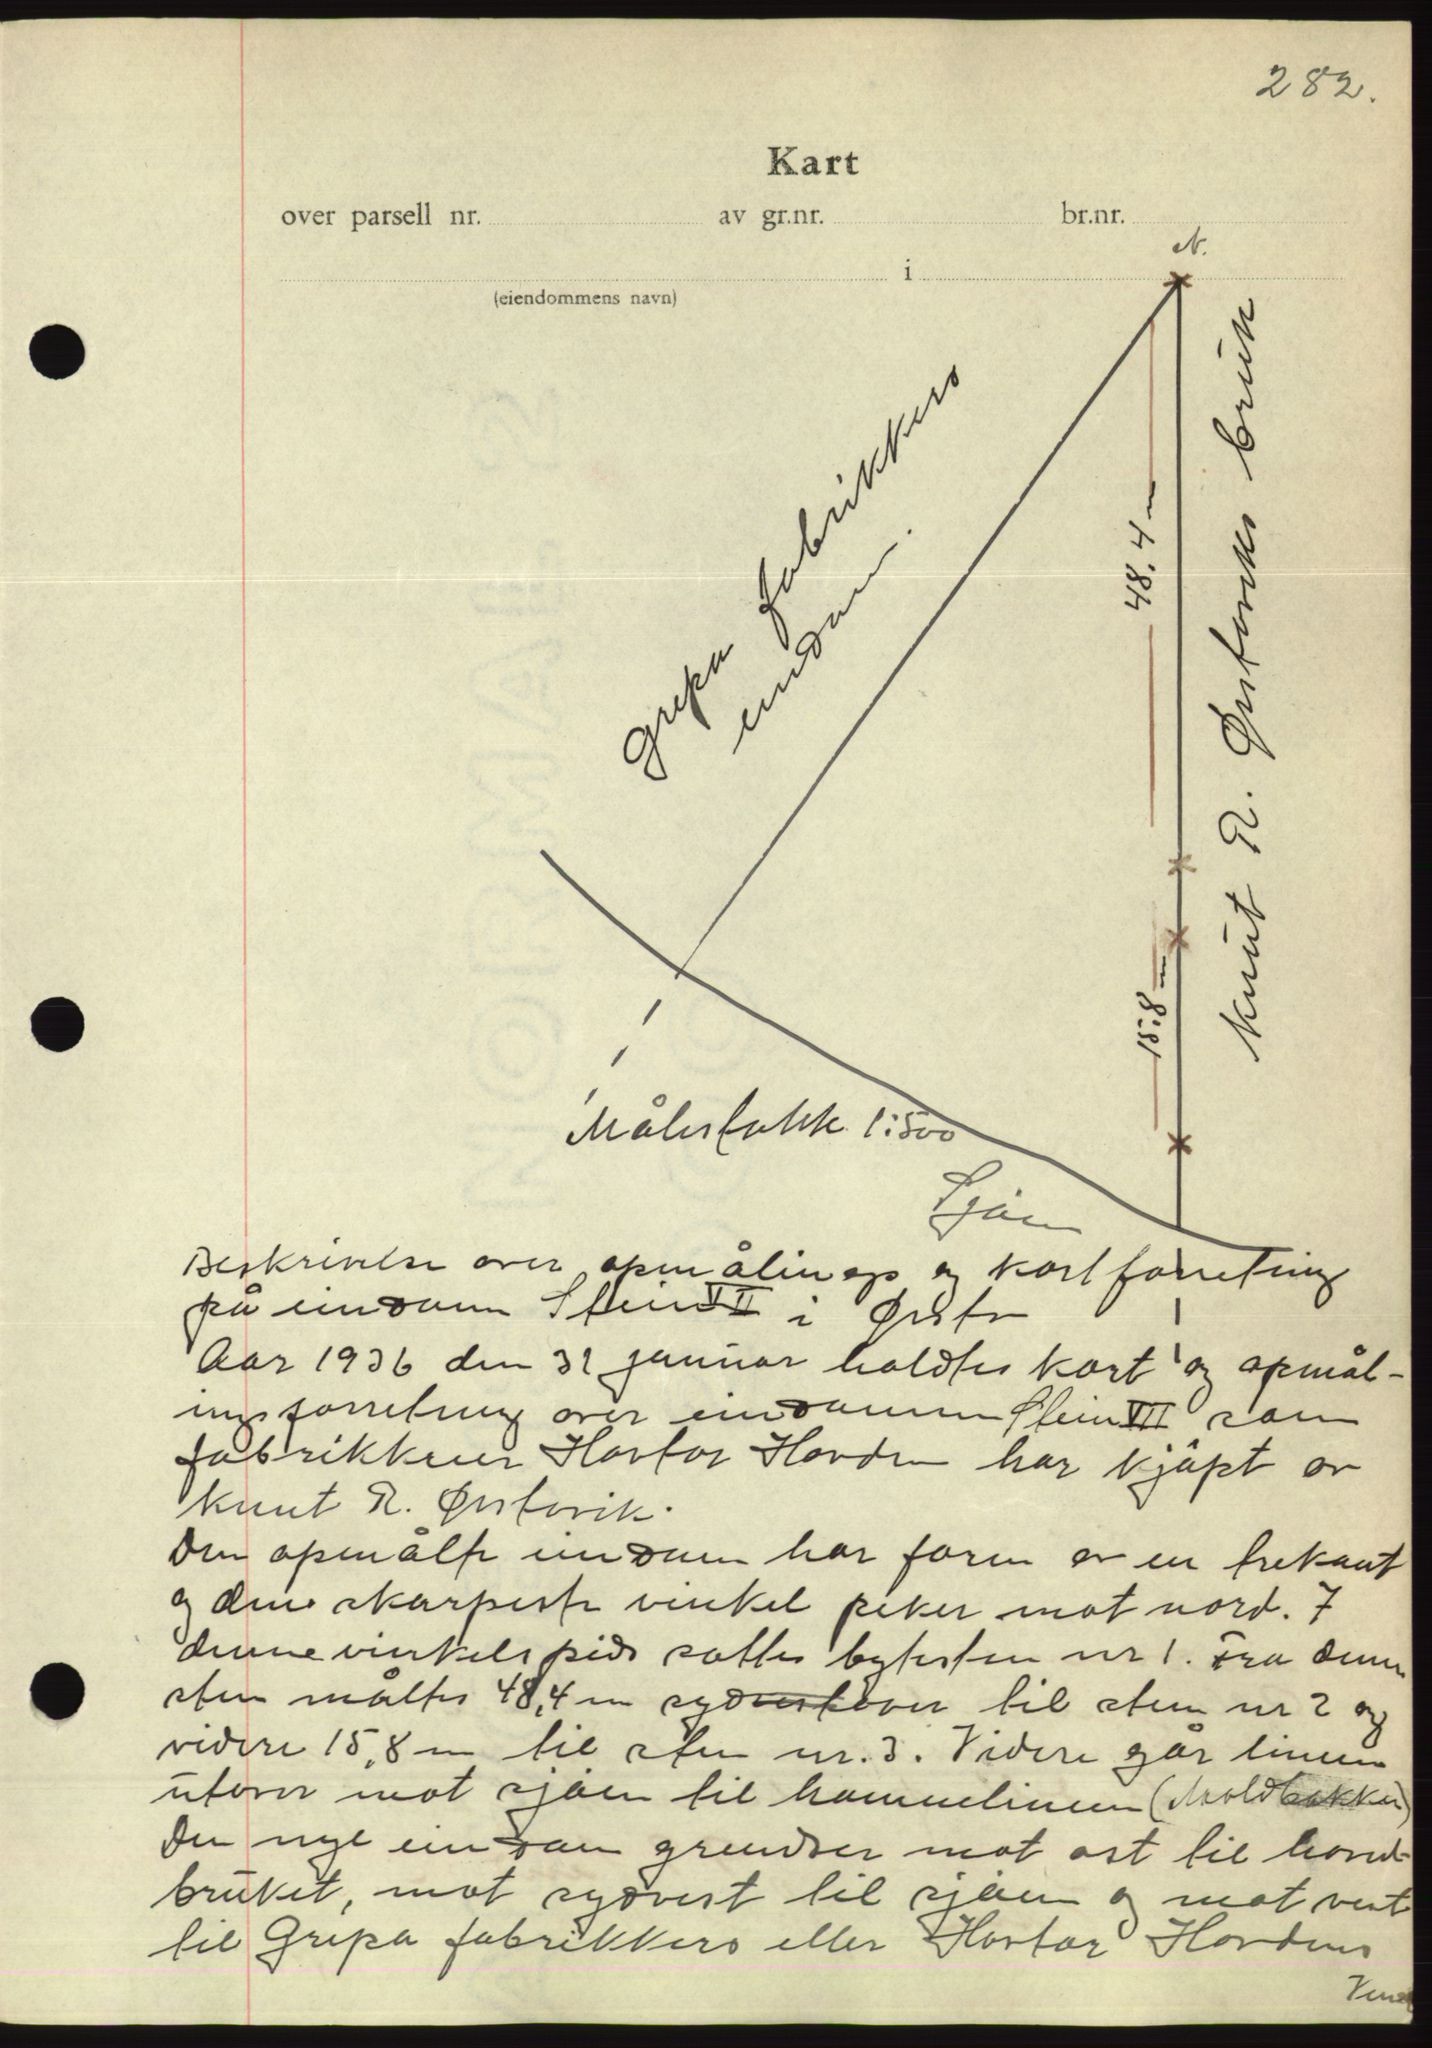 282.
Kart
over parsell nr. av gr.nr. br.nr.
i N.
(eiendommens navn)
Grepa fabrikkers
eindom.
48,4 m
15,8 m
Knut R. Ørstaviks bruk
Målestokk 1:500
Sjøen
Beskrivelse over opmålings og kartforretning
på eindom Stein VII i Ørsta
Aar 1936 den 31 januar holdtes kart og opmål-
ingsforretning over eindommen Stein VII som
fabrikkeier Havtor Hovden har kjøpt av
Knut R. Ørstavik.
Den opmålte eindom har form av en trekant
og dens skarpeste vinkel peker mot nord. I
denne vinkelspids sattes bytesten nr 1. Fra denne
sten måltes 48,4 m sydover til sten nr 2 og
videre 15,8 m til sten nr. 3. Videre går linien
utover mot sjøen til
Den nye eindom grendser mot øst til hoved-
bruket, mot sydvest til sjøen og mot vest
til Grepa fabrikkers eller Havtor Hovdens